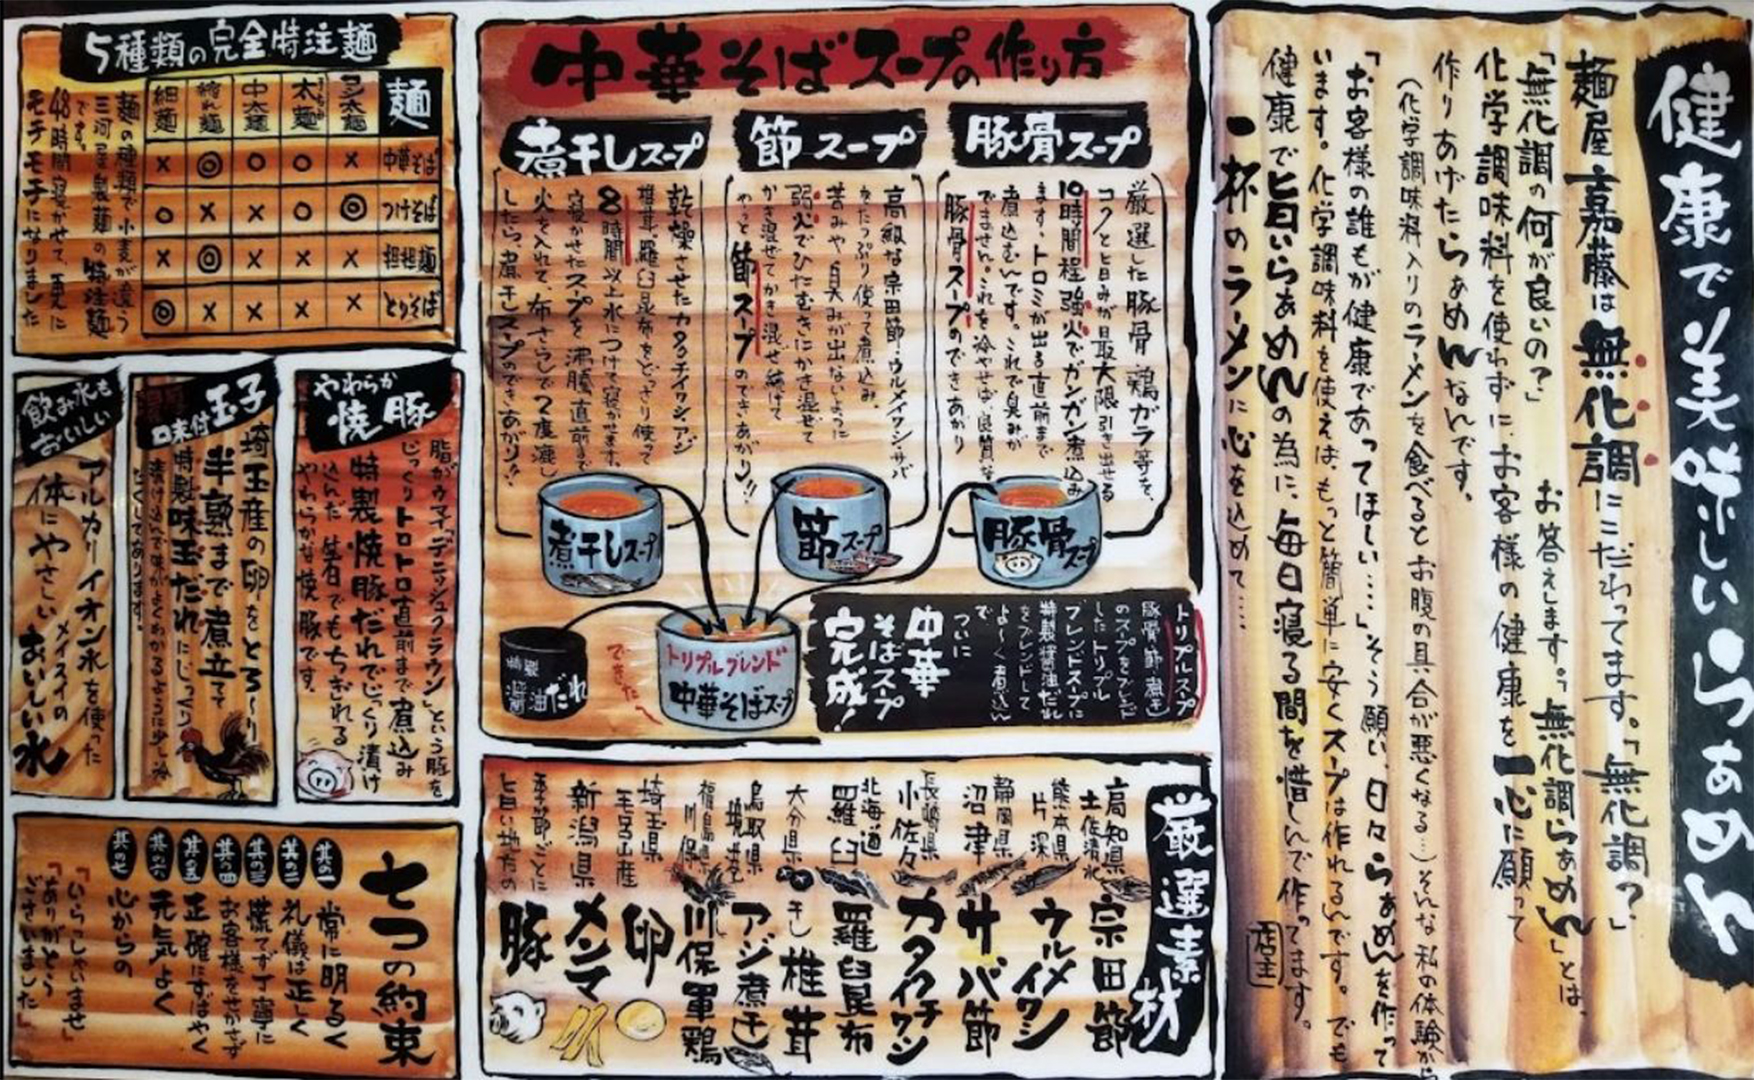 健康で美味しいらぁめん
麺屋 嘉藤は無化調にこだわってます。「無化調？」
「無化調の何が良いの？」 お答えします。「無化調らぁめん」とは、
化学調味料を使わずに、お客様の健康を一心に願って
作りあげたらぁめんなんです。
(化学調味料入りのラーメンを食べるとお腹の具合が悪くなる…)そんな私の体験から
「お客様の誰もが健康であってほしい…。」そう願い、日々らぁめんを作って
います。化学調味料を使えば、もっと簡単に安くスープは作れるんです。でも
健康で旨いらぁめんの為に、毎日寝る間を惜しんで作ってます。
一杯のラーメンに心を込めて……
店主
中華そばスープの作り方
豚骨スープ
厳選した豚骨、鶏ガラ等を、
コクと旨みが最大限引き出せる
10時間程強火でガンガン煮込み
ます。トロミが出る直前まで
煮込むんです。これで臭みが
でません。これを冷やせば良質な
豚骨スープのできあがり
節スープ
高級な宗田節・ウルメイワシ・サバ
をたっぷり使って煮込み、
苦みや臭みが出ないように
弱火でひたむきにかき混ぜて
かき混ぜてかき混ぜ続けて
やっと節スープのできあがり!!
煮干しスープ
乾燥させたカタクチイワシ・アジ
椎茸・羅臼昆布をどっさり使って
8時間以上水につけて寝かせます。
寝かせたスープを沸騰直前まで
火を入れて、布さらしで2度漉し
したら、煮干しスープのできあがり!!
煮干しスープ
節スープ
豚骨スープ
特製醤油だれ
トリプルブレンド
中華そばスープ
できた〜
トリプルスープ
豚骨・節・煮干
のスープをブレンド
したトリプル
ブレンドスープに
特製醤油だれ
をブレンドして
よ〜く煮込ん
で
ついに
中華
そばスープ
完成！
厳選素材
高知県 土佐清水 宗田節
熊本県 片深 ウルメイワシ
静岡県 沼津 サバ節
長崎県 小佐々 カタクチイワシ
北海道 羅臼 羅臼昆布
大分県 干し椎茸
鳥取県 境港 アジ煮干し
福島県 川俣 川俣軍鶏
埼玉県 玉呂山産 卵
新潟県 メンマ
季節ごとに旨い地方の 豚
5種類の完全特注麺
麺 極太麺 太麺 中太麺 縮れ麺 細麺
中華そば × ○ ○ ◎ ×
つけそば ◎ ○ × × ○
担担麺 × × × ◎ ×
とりそば × × × × ◎
麺の種類で小麦が違う
三河屋製麺の特注麺
です。
48時間寝かせて、更に
モチモチになりました
やわらか焼豚
脂がウマイ「デニッシュクラウン」という豚を
じっくりトロトロ直前まで煮込み
特製焼豚だれでじっくり漬け
込んだ箸でもちぎれる
やわらかな焼豚です。
味付玉子
埼玉産の卵をとろ〜り
半熟まで煮立て
特製味玉だれにじっくり
漬け込んで味がよくわかるように少し冷
たくしてあります。
飲み水もおいしい
アルカリイオン水を使った
メイスイの
体にやさしいおいしい水
七つの約束
其の一 常に明るく
其の二 礼儀は正しく
其の三 慌てず丁寧に
其の四 お客様をせかさず
其の五 正確にすばやく
其の六 元気よく
其の七 心からの
「いらっしゃいませ」
「ありがとうございました」